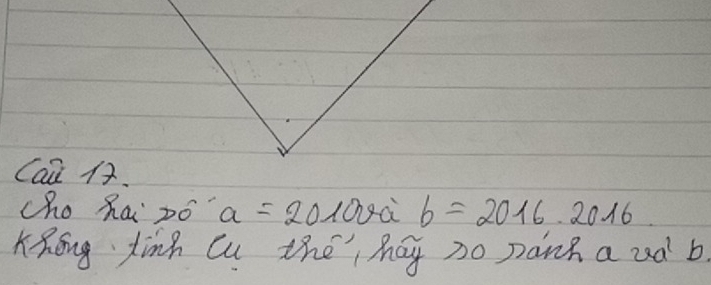 Câu 17.
Cho hai số a = 2010 và b = 2016.2016.
Không tính cụ thể, hãy so sánh a và b.